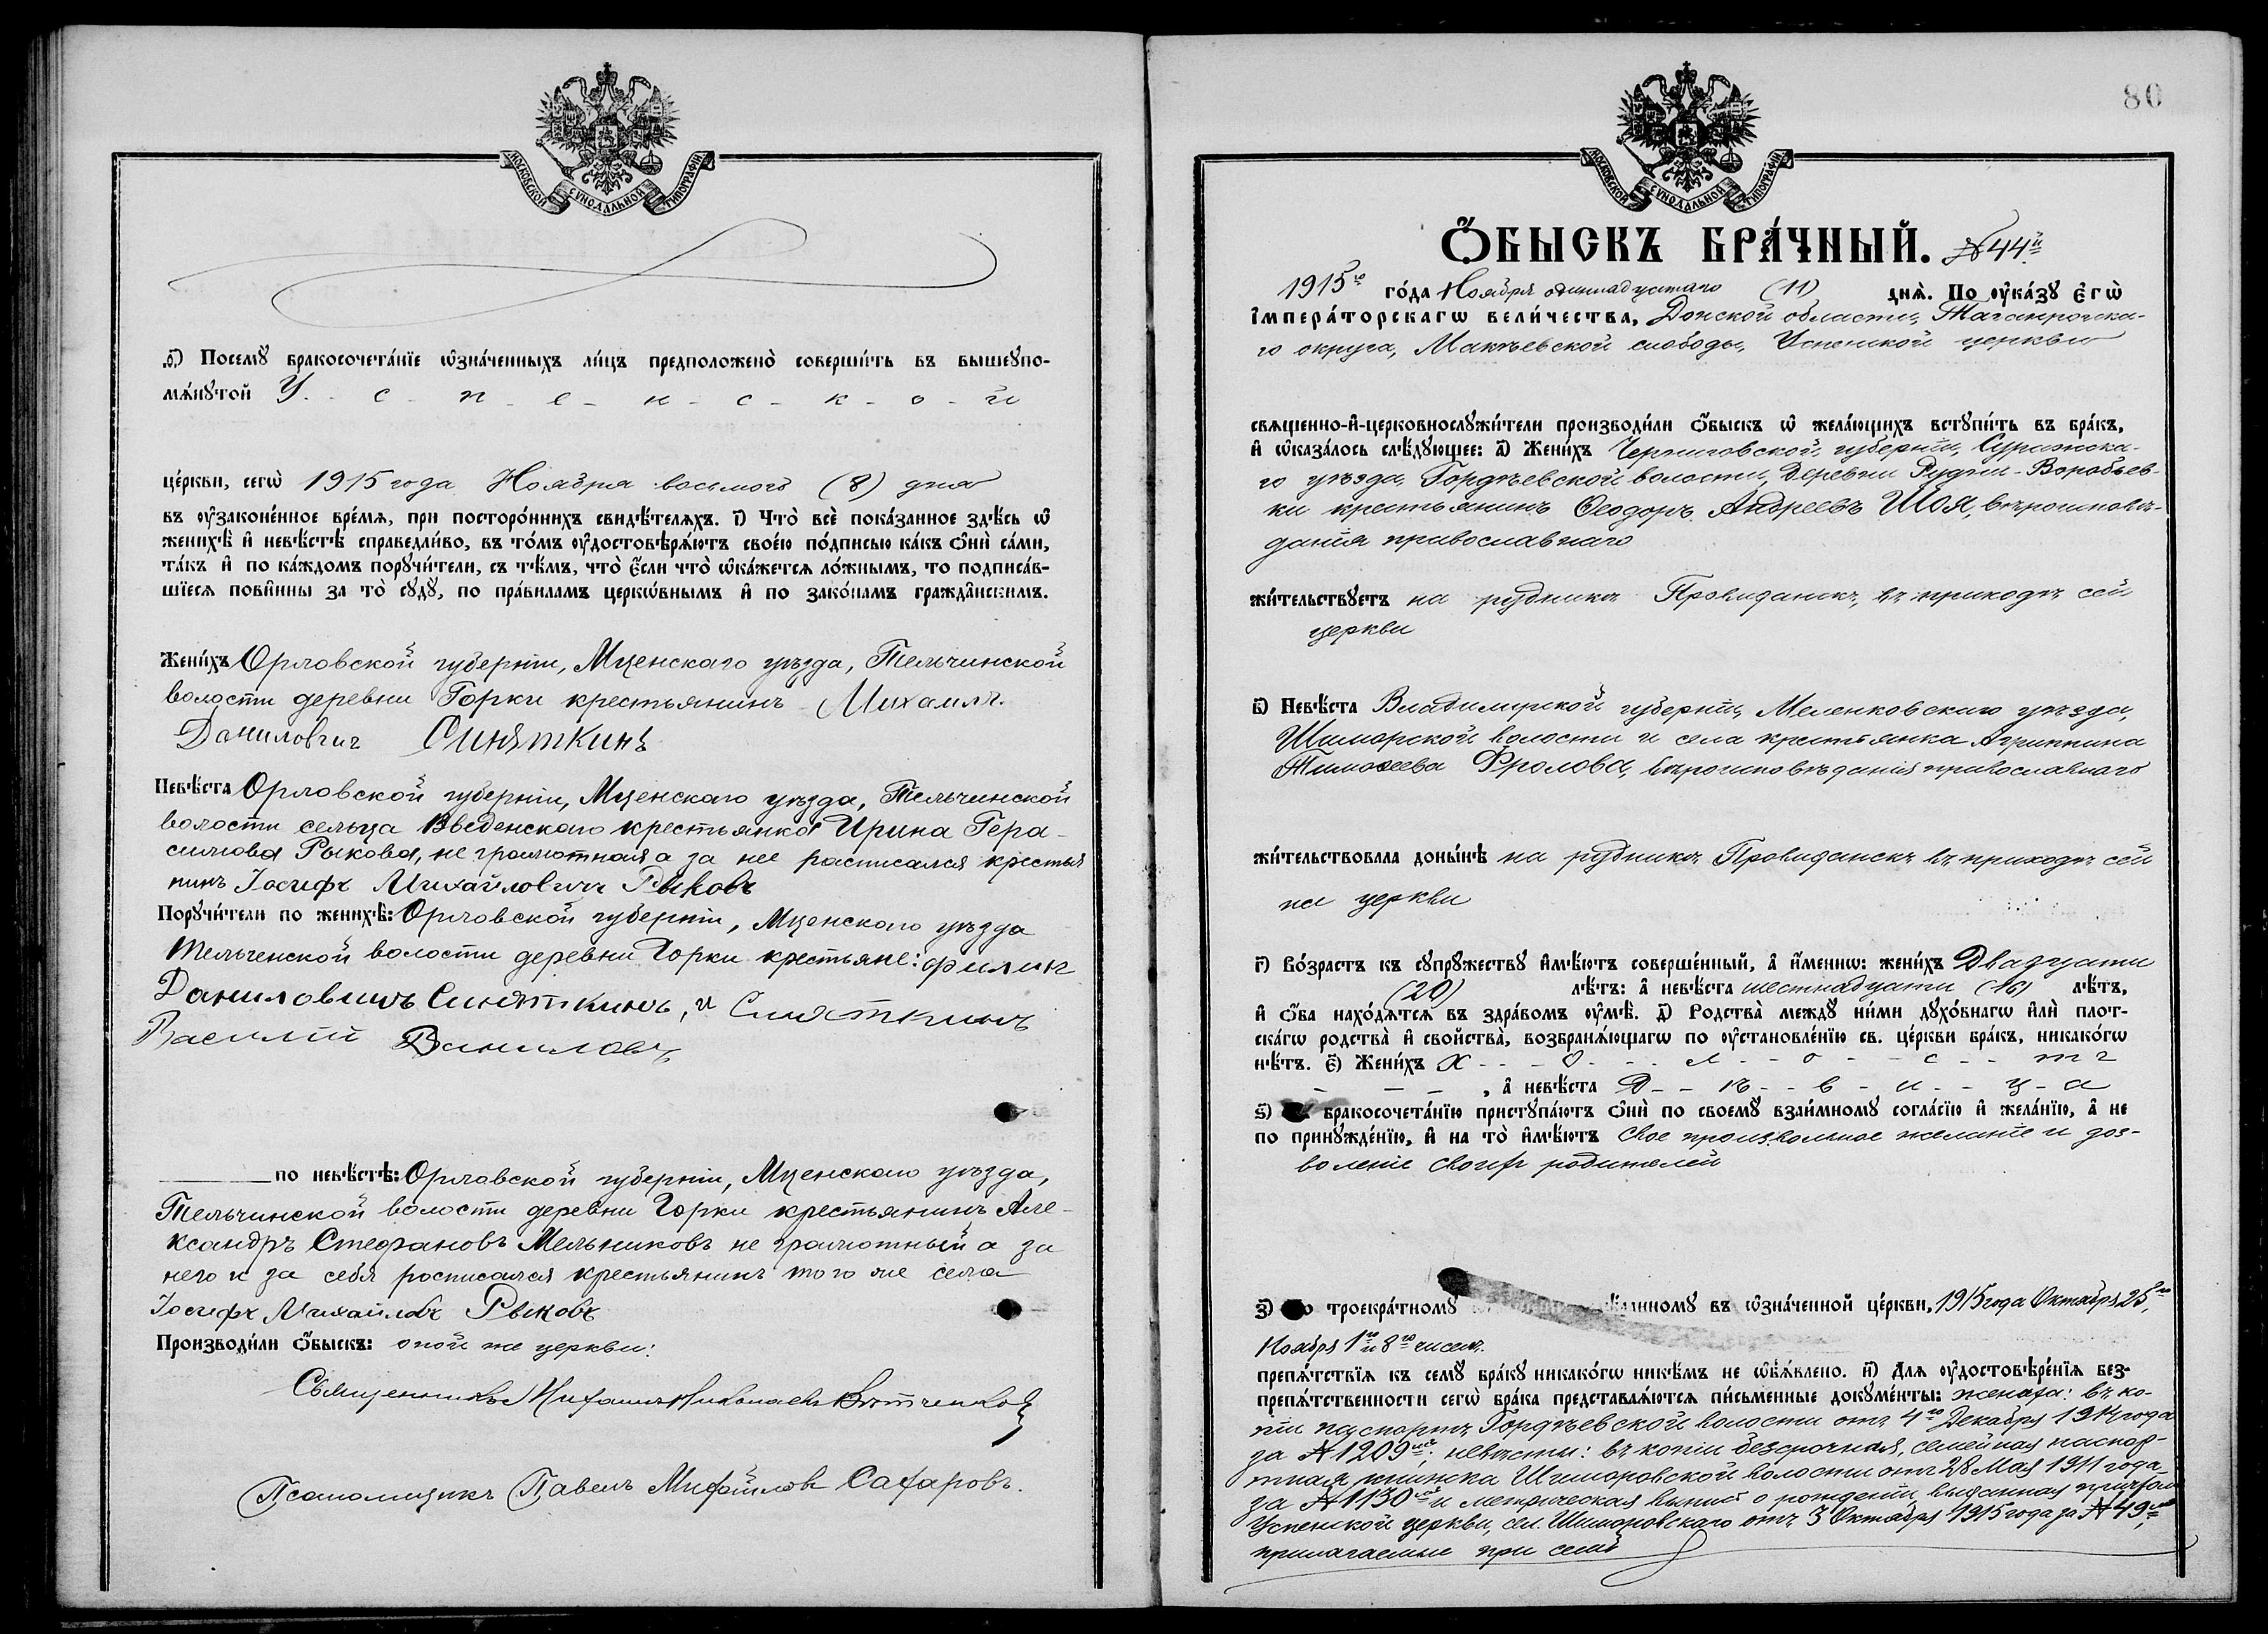 МОСКОВСКОЙ СѴНОДАЛЬНОЙ ТИПОГРАФІИ
.ѳ҃) Посемꙋ бракосочета́нїе ѡ҆зна́ченныхъ ли́цъ предположено̀ соверши́ть въ вышеꙋпо-
мѧ́нꙋтой У - с - п - е - н - с - к - о - й
це́ркви, сегѡ̀ 1915 года Ноября восьмого (8) дня
въ ᲂу҆законе́нное вре́мѧ, при посторо́ннихъ свидѣ́телѧхъ. і҃) Что̀ всѐ пока́занное здѣ́сь ѡ҆
женихѣ̀ и҆ невѣ́стѣ справедли́во, въ то́мъ ᲂу҆достовѣрѧ́ютъ свое́ю по́дписью ка́къ ѻ҆нѝ са́ми,
та́къ и҆ по ка́ждомъ порꙋчи́тели, съ тѣ́мъ, что̀ є҆́сли что̀ ѡ҆ка́жетсѧ ло́жнымъ, то подписа́в-
шїесѧ пови́нны за то̀ сꙋдꙋ̀, по пра́виламъ церко́внымъ и҆ по зако́намъ гражда̑нскимъ.
Жени́хъ Орловской губерніи, Мценскаго уѣзда, Тельчинской
волости деревни Горки крестьянинъ Михаилъ
Даниловичъ Синяткинъ
Невѣ́ста Орловской губерніи, Мценскаго уѣзда, Тельчинской
волости сельца Введенскаго крестьянка Ирина Гера-
симова Рыкова, не грамотная а за нее расписался крестья
нинъ Іосифъ Михайловичъ Рыковъ
Порꙋчи́тели по женихѣ̀: Орловской губерніи, Мценскаго уѣзда
Тельченской волости деревни Горки крестьяне: филип
Даниловичъ Синяткинъ, и Синяткинъ
Василий Даниловъ
по невѣ́стѣ: Орловской губерніи, Мценскаго уѣзда,
Тельчинской волости деревни Горки крестьянинъ Але-
ксандръ Стефановъ Мельниковъ не грамотный а за
него и за себя росписался крестьянинъ того же села
Іосифъ Михайловъ Рыковъ
Производи́ли ѻ҆́быскъ: оной же церкви:
Священникъ Михаилъ Николаевъ
Псаломщикъ Павелъ Михайловъ Сахаровъ.
80
МОСКОВСКОЙ СѴНОДАЛЬНОЙ ТИПОГРАФІИ
Ѻ҆́БЫСКЪ БРА́ЧНЫЙ. № 44й
1915го го́да Ноября одиннадцатаго (11) днѧ̀. По ᲂу҆ка́зꙋ є҆гѡ̀
і҆мпера́торскагѡ вели́чества, Донской области, Таганрогска-
го округа, Макѣевской слободы, Успенской церкви
свѧщенно-и҆-церковнослꙋжи́тели производи́ли ѻ҆́быскъ ѡ҆ жела́ющихъ встꙋпи́ть въ бра́къ,
и҆ ѡ҆каза́лось слѣ́дꙋющее: а҃) Жени́хъ Черниговской губерніи, Суражска-
го уѣзда, Гордѣевской волости, деревни Рудни-Воробьев-
ки крестьянинъ Ѳеодоръ Андреевъ Шоя, вѣроисповѣ-
данія православнаго
жи́тельствꙋетъ на рудникѣ Провидансъ, въ приходѣ сей
церкви
в҃) Невѣ́ста Владимирской губерніи, Меленковскаго уѣзда,
Шиморской волости и села крестьянка Агриппина
Тимоѳеева Фролова, вѣроисповѣданія православнаго
жи́тельствовала доны́нѣ на рудникѣ Провидансъ въ приходѣ сей
же церкви
г҃) Во́зрастъ къ сꙋпрꙋ́жествꙋ и҆мѣ́ютъ соверше́нный, а҆ и҆́меннѡ: жени́хъ Двадцати
(20) лѣ́тъ: а҆ невѣ́ста шестнадцати (16) лѣ́тъ,
и҆ ѻ҆́ба нахо́дѧтсѧ въ здра́вомъ ᲂу҆мѣ̀. д҃) Родства̀ междꙋ ни́ми дꙋхо́внагѡ и҆лѝ пло́т-
ска́гѡ родства̀ и҆ свойства̀, возбранѧ́ющагѡ по ᲂу҆становле́нїю св. це́ркви бра́къ, никако́гѡ
нѣ́тъ. є҃) Жени́хъ Х - о - л - о - с - т ъ
, а҆ невѣ́ста Д - ѣ - в - и - ц - а
ѕ҃) бракосочета́нїю пристꙋпа́ютъ ѻ҆нѝ по своемꙋ̀ взаи́мномꙋ согла́сїю и҆ жела́нїю, а҆ не
по принꙋжде́нїю, и҆ на то̀ и҆мѣ́ютъ свое произвольное желаніе и доз-
воленіе своихъ родителей
з҃) троекра́тномꙋ въ ѡ҆зна́ченной це́ркви, 1915 года Октября 25го,
Ноября 1го и 8го чиселъ.
препѧ́тствїѧ къ семꙋ̀ бра́кꙋ никако́гѡ никѣ́мъ не ѡ҆б̾ѧ́влено. и҃) Для ᲂу҆достовѣре́нїѧ без-
препѧ́тственности сегѡ̀ бра́ка представлѧ́ютсѧ пи́сьменные докꙋме́нты: жениха: въ ко-
піи паспортъ Гордѣевской волости отъ 4го Декабря 1914 года
за № 1209мъ; невѣсты: въ копіи безсрочная, семейная паспор-
тная книжка Шиморовской волости отъ 28 Мая 1911 года
за № 1130мъ и метрическая выпись о рожденіи, выданная причтомъ
Успенской церкви, сел. Шиморовскаго отъ 3 Октября 1915 года за № 49мъ,
прилагаемые при семъ